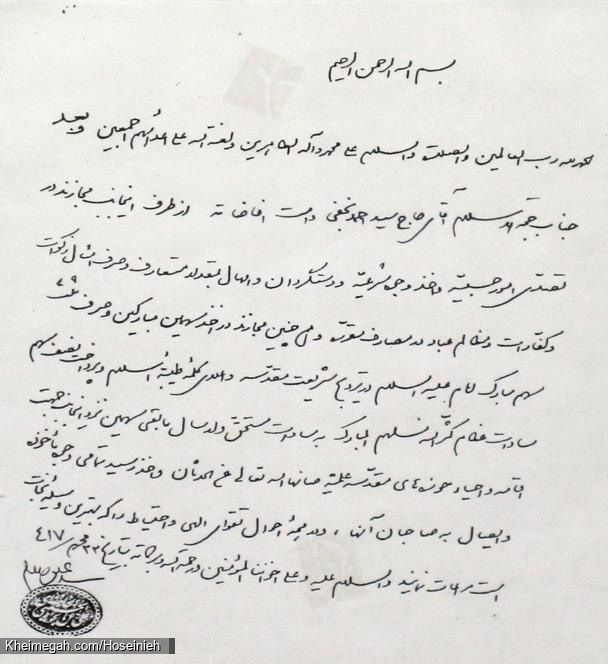 بسم الله الرحمن الرحیم
الحمد لله رب العالمین والصلوة والسلام علی محمد وآله الطاهرین ولعنة الله علی اعدائهم اجمعین وبعد
جناب حجة الاسلام آقای حاج سید احمد نجفی دامت افاضاته از طرف اینجانب مجازند در
تصدی امور حسبیه واخذ وجوه شرعیه ودستگردان وامهال بمقدار متعارف وصرف امثال زکوات
وکفارات ومظالم عباد در مصارف مقرره وهمچنین مجازند در اخذ سهمین مبارکین وصرف ثلث
سهم مبارک امام علیه السلام در ترویج شریعت مقدسه واعلای کلمه طیبه اسلام وپرداخت نصف سهم
سادات عظام کثر الله نسلهم المبارک به سادات مستحق وارسال مابقی سهمین نزد اینجانب جهت
اقامه واحیاء حوزه‌های مقدسه علمیه صانها الله تعالی عن الحدثان واخذ رسید تمامی وجوه ماخوذه
وایصال به صاحبان آنها ، ودر همه احوال تقوای الهی واحتیاط را که بهترین وسیله نجات
است مراعات نمایند والسلام علیه وعلی اخواننا المؤمنین ورحمة الله وبرکاته بتاریخ ۲۳ محرم ۴۱۷
Kheimegah.com/Hoseinieh